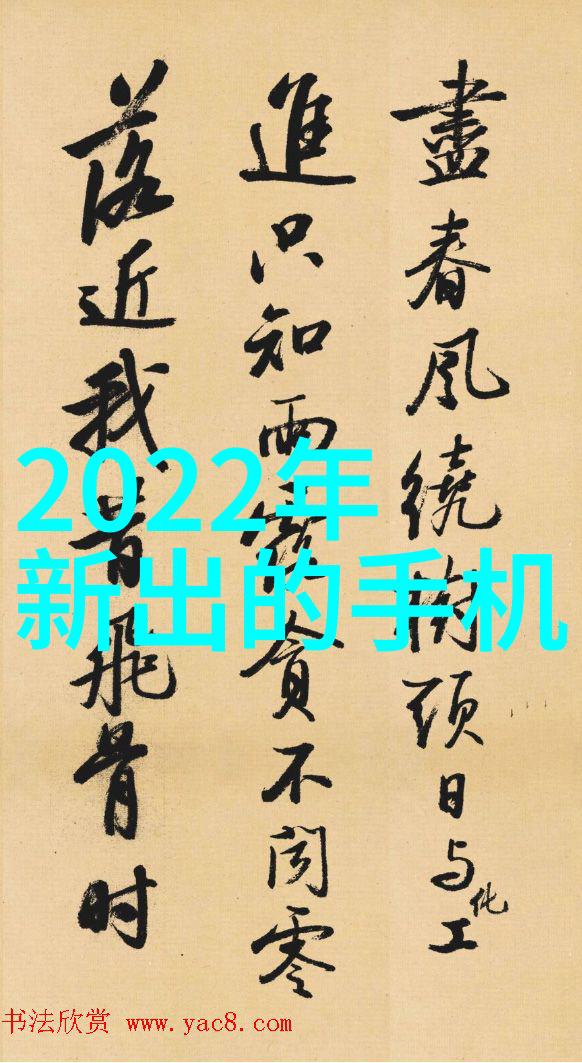 盡春風繞樹頭日与化工
進只知雨露貪不聞零
落近我昔飛骨时
2022年
新出的手机
书法欣赏 www.yac8.com